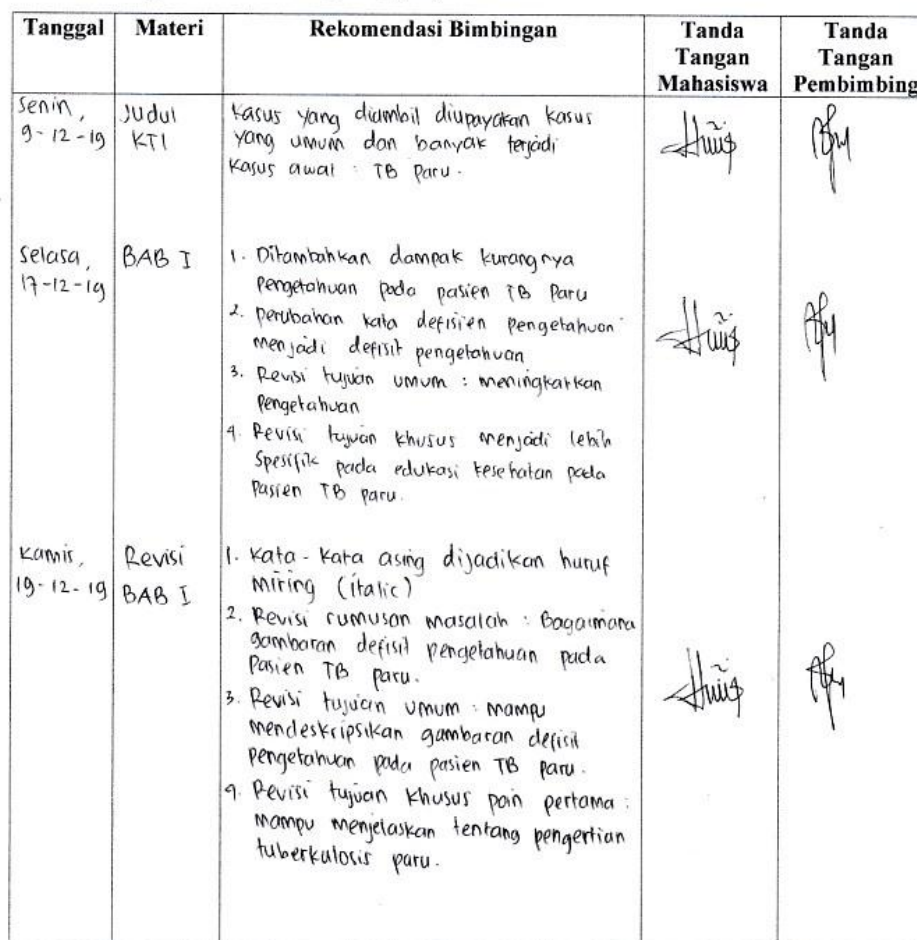 Tanggal Materi Rekomendasi Bimbingan Tanda Tangan Mahasiswa Tanda Tangan Pembimbing
Senin, 9-12-19
Judul KTI
Kasus yang diambil diupayakan kasus
yang umum dan banyak terjadi
Kasus awal : TB Paru.
Selasa, 17-12-19
BAB I
1. Ditambahkan dampak kurangnya
Pengetahuan pada pasien TB Paru
2. perubahan kata defisien pengetahuan
menjadi defisit pengetahuan
3. Revisi tujuan umum : meningkatkan
Pengetahuan
4. Revisi tujuan khusus menjadi lebih
Spesifik pada edukasi kesehatan pada
Pasien TB paru.
Kamis, 19-12-19
Revisi BAB I
1. Kata-kata asing dijadikan huruf
miring (italic)
2. Revisi rumusan masalah : Bagaimana
gambaran defisit pengetahuan pada
Pasien TB paru.
3. Revisi tujuan umum : mampu
mendeskripsikan gambaran defisit
pengetahuan pada pasien TB paru.
4. Revisi tujuan khusus poin pertama :
mampu menjelaskan tentang pengertian
tuberkulosis paru.